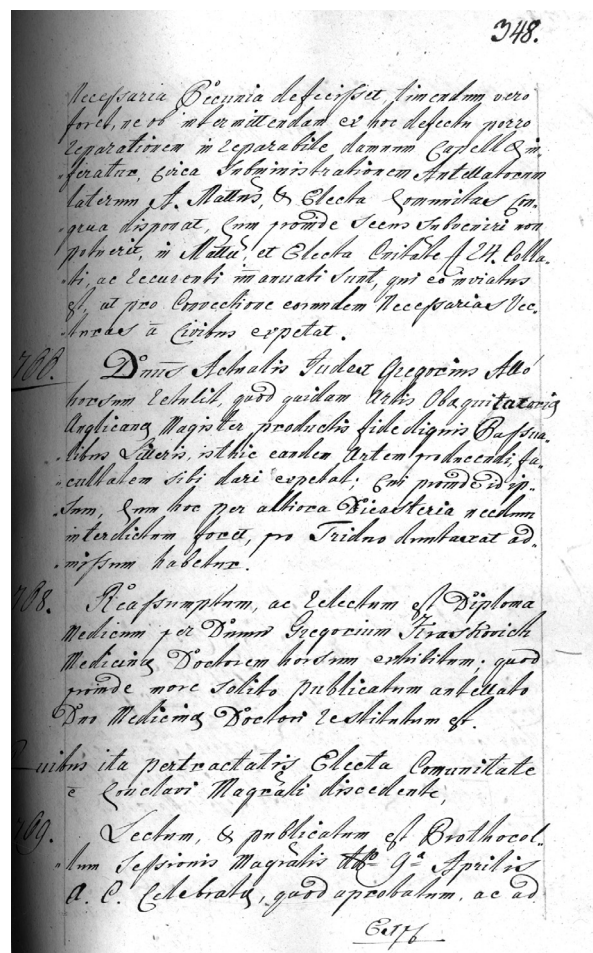 348.
Necessaria Pecunia defecisset, timendum vero
foret, ne ob intermittendam ex hoc defectu porro
reparationem irreparabile damnum Capellæ in-
feratur, circa Subministrationem Antellatorum
laterum A. Mattus, & Electa Communitas Con-
grua disponat, Cum proinde secus subveniri non
potuerit, in Mattu, et Electa Cnitate f 24. Colla-
ti, ac Recurenti im̄anuati sunt, qui eo inviatus
est, ut pro Convectione eorundem Necessarias Vec-
turas a Civibus expetat.
Dnus Actualis Judex Gregorius Alló
horsum retulit, quod quidam Artis Obequitatoriæ
Anglicanæ Magister productis fide dignis Passua-
libus Litteris, isthic eandem Artem producendi, fa-
cultatem sibi dari expetat; Cui proinde id ip-
sum, Cum hoc per altiora Dicasteria necdum
interdictum foret, pro Triduo duntaxat ad-
missum habetur.
768. Reassumptum, ac relectum est Diploma
Medicum per Dnum Gregorium Kraskovich
Medicinæ Doctorem horsum exhibitum; quod
proinde more solito publicatum antellato
Dno Medicinæ Doctori restitutum est.
Quibus ita pertractatis Electa Comunitate
e Conclavi Magrali discedente,
769. Lectum, & publicatum est Prothocol-
lum Sessionis Magralis 9a Aprilis
A. C. Celebratæ, quod aprobatum, ac ad